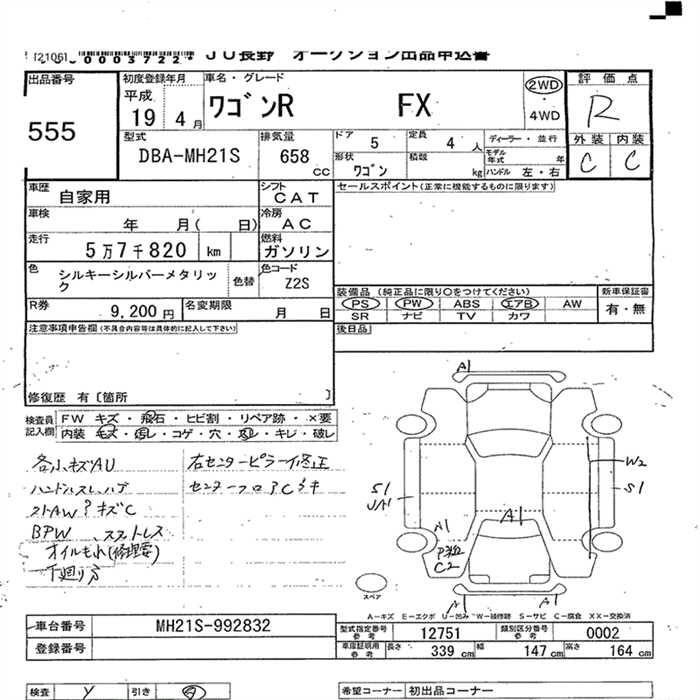 [2106]
0003722
JU長野 オークション出品申込書
出品番号
555
初度登録年月
平成
19 4 月
車名・グレード
ワゴンR FX
2WD
・
4WD
評価点
R
外装 内装
C C
型式
DBA-MH21S
排気量
658
cc
ドア
5
定員
4 人
形状
ワゴン
積載
kg
ディーラー・並行
モデル年式 年
ハンドル 左・右
車歴
自家用
シフト
CAT
セールスポイント(正常に機能するものに限ります)
車検
年 月( 日)
冷房
AC
走行
5万7千820 km
燃料
ガソリン
色
シルキーシルバーメタリック
色替
色コード
Z2S
R券
9,200円
名変期限
月 日
装備品(純正品に限り○をつけてください)
PS PW ABS エアB AW
SR ナビ TV カワ
新車保証書
有・無
後日品
注意事項申告欄(不具合内容等は具体的に記入して下さい)
修復歴 有〔箇所 〕
検査員記入欄
FW キズ・飛石・ヒビ割・リペア跡・×要
内装 キズ・汚レ・コゲ・穴・スレ・キレ・破レ
各小キズAU
ハンドルスレ
キズC
BPW
オイルもれ(修理要)
下廻りサ
右センターピラー修正
センターフロア
A1
W2
S1
S1
A1
A1
C2
A1
A1
スペア
A-キズ E-エクボ U-凹み W-補修跡 S-サビ C-腐食 XX-交換済
車台番号
MH21S-992832
登録番号
型式指定番号
参考
12751
類別区分番号
参考
0002
車庫証明用
参考
長さ 339 cm
幅 147 cm
高さ 164 cm
検査
Y
引き
希望コーナー
初出品コーナー